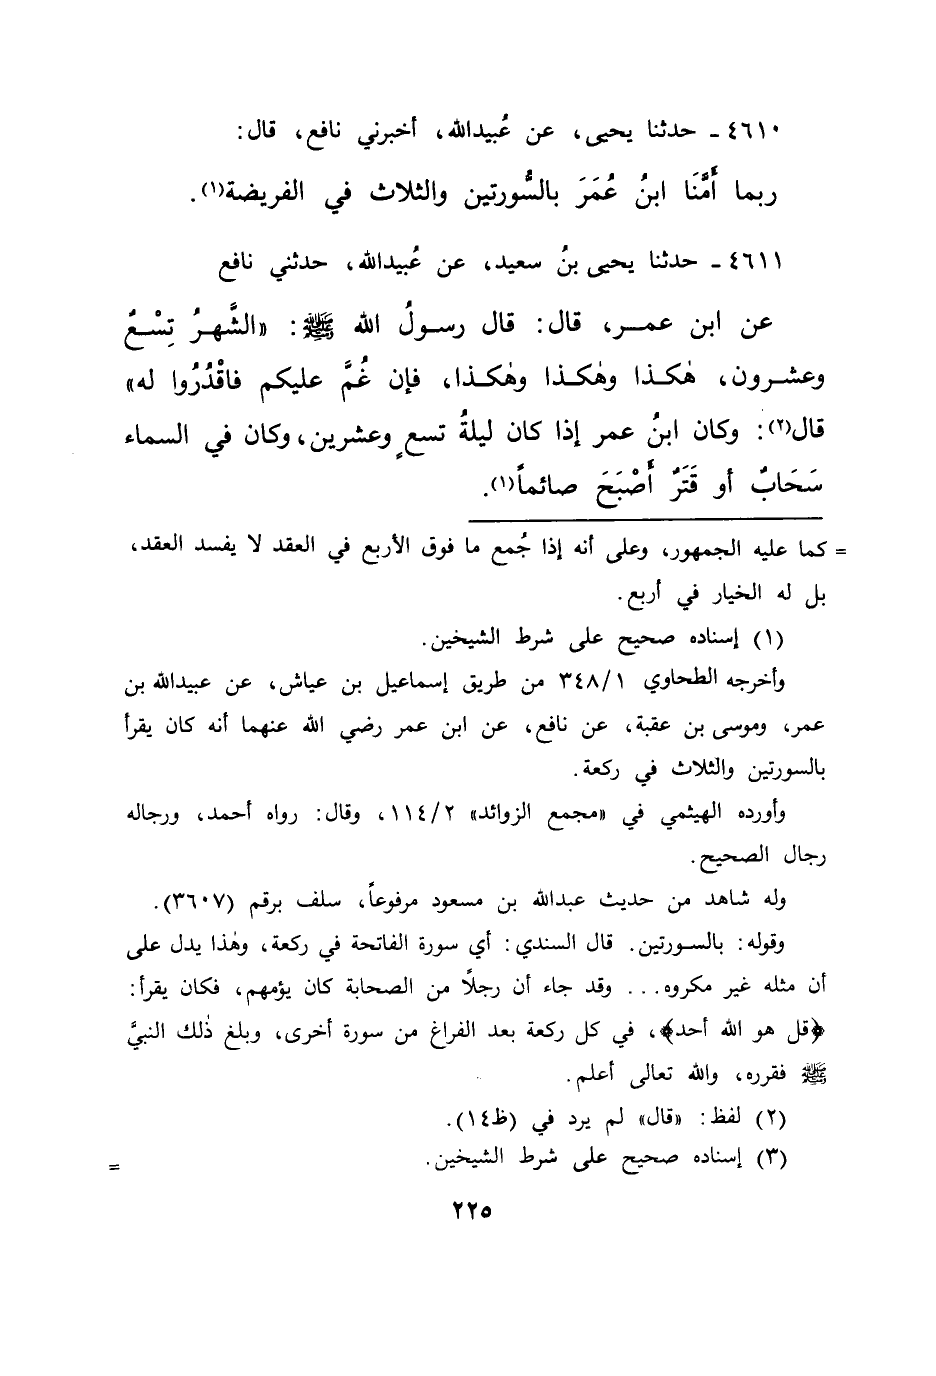 ٤٦١٠ ـ حدثنا يحيى، عن عُبيدالله، أخبرني نافع، قال:
ربما أَمَّنَا ابنُ عُمَرَ بالسُّورتين والثلاث في الفريضة(١).
٤٦١١ ـ حدثنا يحيى بنُ سعيد، عن عُبيدالله، حدثني نافع
عن ابن عمـر، قال: قال رسـولُ الله ﷺ: «الشَّهـرُ تِسْـعٌ
وعشـرون، هٰكـذا وهٰكـذا وهٰكـذا، فإن غُمَّ عليكم فاقْدُرُوا له»
قال(٢): وكان ابنُ عمر إذا كان ليلةُ تسعٍ وعشرين، وكان في السماء
سَحَابٌ أو قَتَرٌ أَصْبَحَ صائماً(١).
= كما عليه الجمهور، وعلى أنه إذا جُمع ما فوق الأربع في العقد لا يفسد العقد،
بل له الخيار في أربع.
(١) إسناده صحيح على شرط الشيخين.
وأخرجه الطحاوي ٣٤٨/١ من طريق إسماعيل بن عياش، عن عبيدالله بن
عمر، وموسى بن عقبة، عن نافع، عن ابن عمر رضي الله عنهما أنه كان يقرأ
بالسورتين والثلاث في ركعة.
وأورده الهيثمي في «مجمع الزوائد» ١١٤/٢، وقال: رواه أحمد، ورجاله
رجال الصحيح.
وله شاهد من حديث عبدالله بن مسعود مرفوعاً، سلف برقم (٣٦٠٧).
وقوله: بالسـورتين. قال السندي: أي سورة الفاتحة في ركعة، وهٰذا يدل على
أن مثله غير مكروه... وقد جاء أن رجلًا من الصحابة كان يؤمهم، فكان يقرأ:
﴿قل هو الله أحد﴾، في كل ركعة بعد الفراغ من سورة أخرى، وبلغ ذٰلك النبيَّ
ﷺ فقرره، والله تعالى أعلم.
(٢) لفظ: «قال» لم يرد في (ظ١٤).
(٣) إسناده صحيح على شرط الشيخين. =
٢٢٥